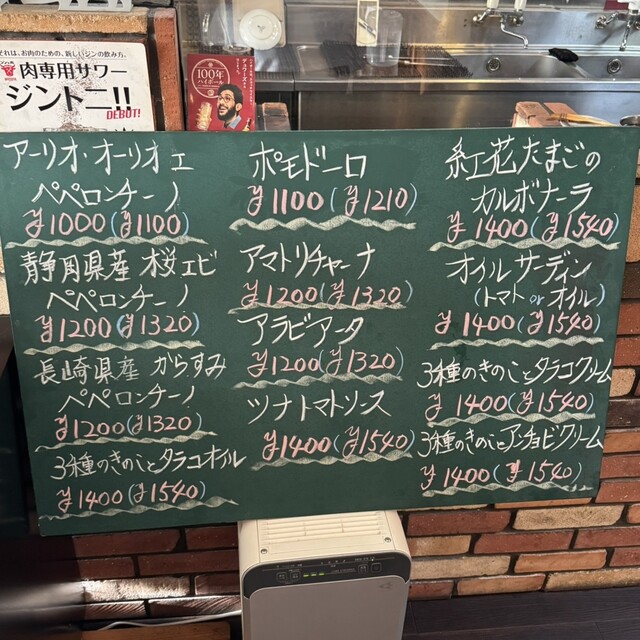 それは、お肉のための、新しいジンの飲み方。
肉専用サワー
ジントニ!!
DEBUT!
100年
ハイボール
アーリオ・オーリオ エ
ペペロンチーノ
¥1000(¥1100)
静岡県産 桜エビ
ペペロンチーノ
¥1200(¥1320)
長崎県産 からすみ
ペペロンチーノ
¥1200(¥1320)
3種のきのことタラコオイル
¥1400(¥1540)
ポモドーロ
¥1100(¥1210)
アマトリチャーナ
¥1200(¥1320)
アラビアータ
¥1200(¥1320)
ツナトマトソース
¥1400(¥1540)
紅花たまごの
カルボナーラ
¥1400(¥1540)
オイルサーディン
(トマト or オイル)
¥1400(¥1540)
3種のきのことタラコクリーム
¥1400(¥1540)
3種のきのことアンチョビクリーム
¥1400(¥1540)